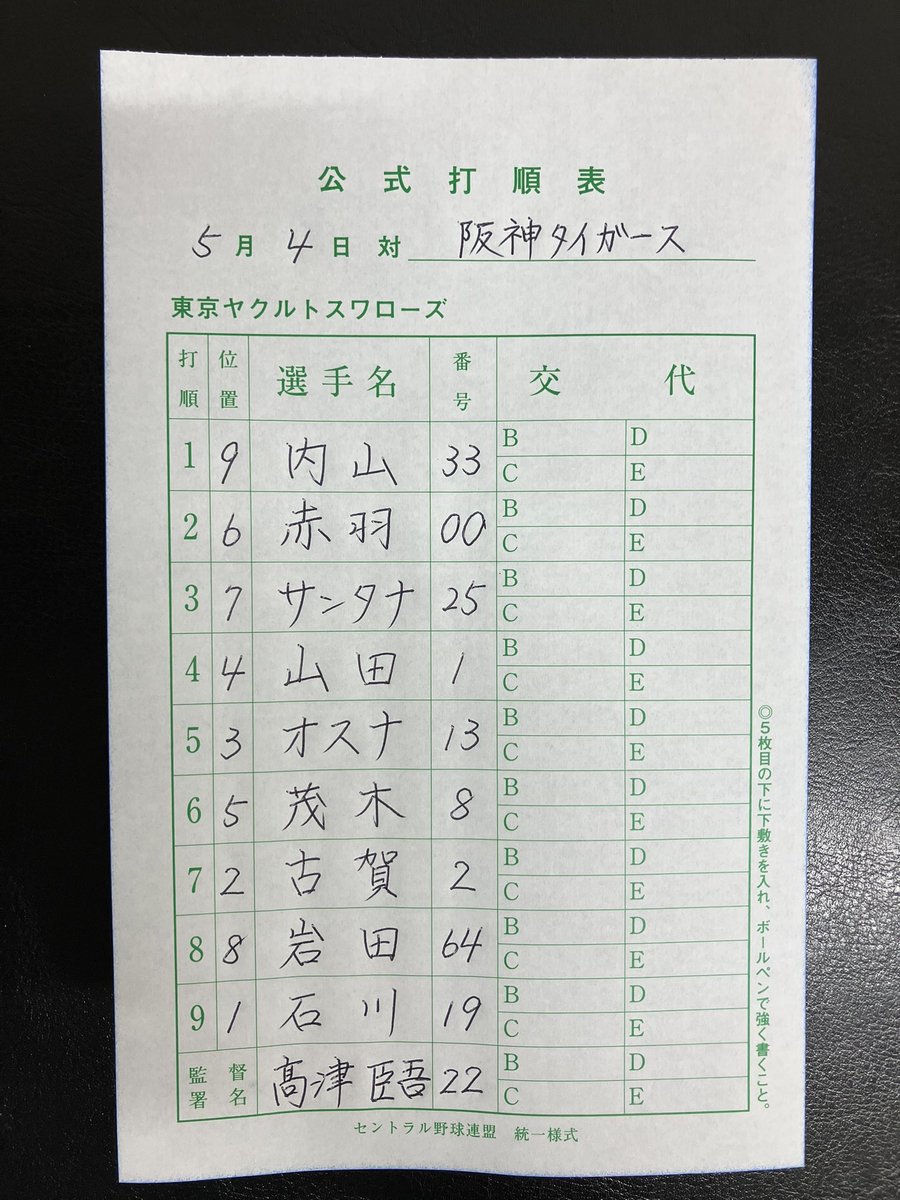 公式打順表
5月4日対 阪神タイガース
東京ヤクルトスワローズ
打順 位置 選手名 番号 交代
1 9 内山 33 B D
C E
2 6 赤羽 00 B D
C E
3 7 サンタナ 25 B D
C E
4 4 山田 1 B D
C E
5 3 オスナ 13 B D
C E
6 5 茂木 8 B D
C E
7 2 古賀 2 B D
C E
8 8 岩田 64 B D
C E
9 1 石川 19 B D
C E
監督署名 髙津臣吾 22 B D
C E
◎5枚目の下に下敷きを入れ、ボールペンで強く書くこと。
セントラル野球連盟 統一様式